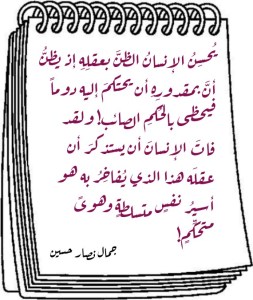 يُحسِنُ الإنسانُ الظنَّ بعقلِهِ إذ يظنُّ
أنَّ بمقدورِهِ أن يحتكمَ إليه دوماً
فيحظى بالحُكمِ الصائب! ولقد
فاتَ الإنسانَ أن يستذكرَ أن
عقلَه هذا الذي يُفاخرُ به هو
أسيرُ نفسٍ متسلطةٍ وهوىً
متحكّمٍ!
جمال نصار حسين